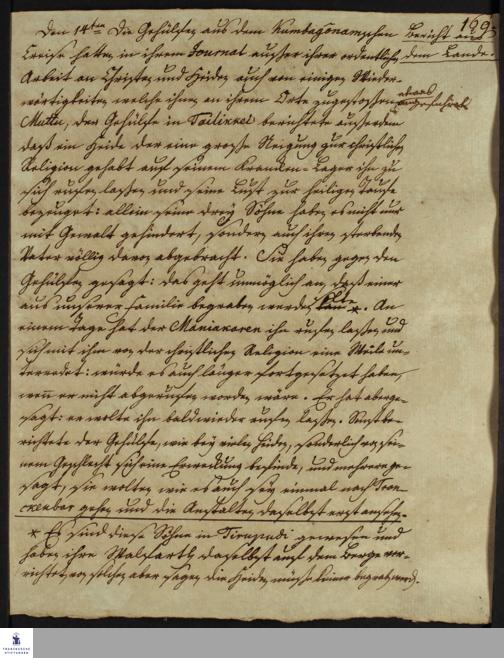 1695
Den 14ten Die Gehülfen aus dem Kumbagonamschen Bericht aus
Creise hatten in ihrem Journal ausser ihrer ordentlichen dem Lande.
Arbeit an Christen und Heiden auch von einigen Wieder-
wärtigkeiten welche ihnen an ihrem Orte zugestossen etwas
Muttu, der Gehülfe in ausserdem
daß ein Heide der eine grosse Neigung zur christlichen
Religion gehabt auf seinem Krancken-Lager ihn zu
sich rufen lassen und seine Lust zur heiligen Taufe
bezeuget: allein seine drey Söhne haben es nicht nur
mit Gewalt gehindert, sondern auch ihren sterbenden
Vater völlig davon abgebracht. Sie haben gegen den
Gehülfen gesagt: das geht unmöglich an, daß einer
aus unserer Familie begraben werden solte *. An
einem Tage hat der Maniakaren ihn rufen lassen und
sich mit ihm von der christlichen Religion eine Weile un-
terredet: würde es auch länger fortgesetzet haben,
wenn er nicht abgerufen worden wäre. Er hat aber ge-
sagt: er wolte ihn bald wieder rufen lassen. Sonst be-
richtete der Gehülfe, wie bey vielen Heiden, sonderlich von sei-
nem Geschlecht sich eine Erweckung befinde, und mehrere ge-
sagt, sie wolten wie es auch sey einmal nach Tran-
ckenbar gehen und die Anstalten daselbst erst ansehen.
* Es sind diese Söhne in Tirupadi gewesen und
haben ihre Walfarth daselbst auf dem Berge ver-
richtet, von solchen aber sagen die Heiden müsse keiner begraben werd.
FRANCKESCHE
STIFTUNGEN